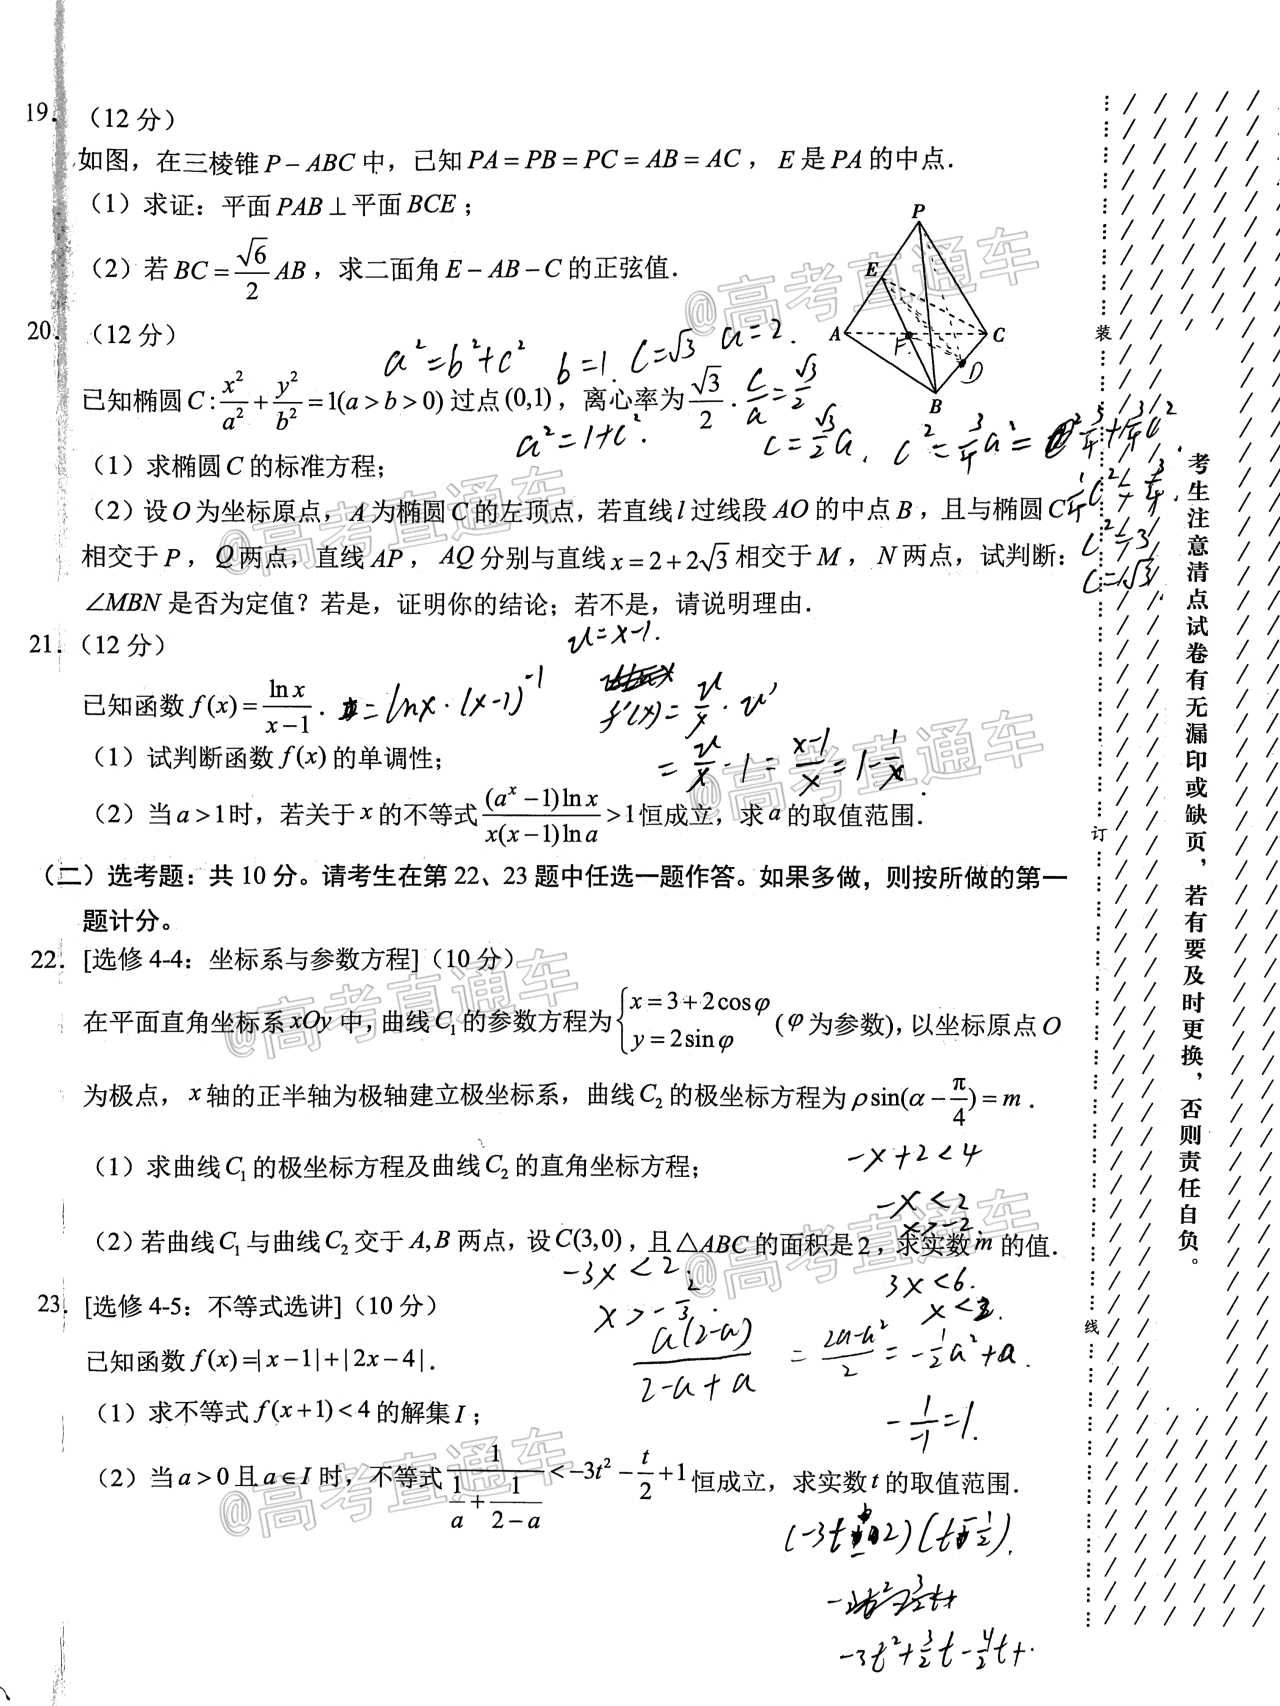 19. （12 分）
如图，在三棱锥 P－ABC 中，已知 PA＝PB＝PC＝AB＝AC，E 是 PA 的中点．
（1）求证：平面 PAB⊥平面 BCE；
（2）若 BC＝\frac{\sqrt{6}}{2}AB，求二面角 E－AB－C 的正弦值．
P
E
A
C
F
D
B
20. （12 分）
a²=b²+c² b=1. c=√3 a=2.
已知椭圆 C: \frac{x^2}{a^2}+\frac{y^2}{b^2}=1(a>b>0) 过点 (0,1)，离心率为 \frac{\sqrt{3}}{2}． \frac{c}{a}=\frac{\sqrt{3}}{2}
a²=1+c². c=\frac{\sqrt{3}}{2}a. c²=\frac{3}{4}a²=
（1）求椭圆 C 的标准方程；
（2）设 O 为坐标原点，A 为椭圆 C 的左顶点，若直线 l 过线段 AO 的中点 B，且与椭圆 C
相交于 P，Q 两点，直线 AP，AQ 分别与直线 x=2+2\sqrt{3} 相交于 M，N 两点，试判断：
c²=3
c=√3
∠MBN 是否为定值？若是，证明你的结论；若不是，请说明理由．
21. （12 分）
u=x-1.
已知函数 f(x)=\frac{\ln x}{x-1}． =lnx·(x-1)^{-1} f'(x)=\frac{u}{x}·u'
（1）试判断函数 f(x) 的单调性；
=\frac{u}{x}·1=\frac{x-1}{x}=1-\frac{1}{x}
（2）当 a>1 时，若关于 x 的不等式 \frac{(a^x-1)\ln x}{x(x-1)\ln a}>1 恒成立，求 a 的取值范围．
（二）选考题：共 10 分。请考生在第 22、23 题中任选一题作答。如果多做，则按所做的第一
题计分。
22. [选修 4-4：坐标系与参数方程]（10 分）
在平面直角坐标系 xOy 中，曲线 C₁ 的参数方程为 \begin{cases} x=3+2\cos φ \\ y=2\sin φ \end{cases} (φ 为参数)，以坐标原点 O
为极点，x 轴的正半轴为极轴建立极坐标系，曲线 C₂ 的极坐标方程为 ρ sin(α－\frac{π}{4})=m．
（1）求曲线 C₁ 的极坐标方程及曲线 C₂ 的直角坐标方程；
-x+2<4
-x<2
x>-2
（2）若曲线 C₁ 与曲线 C₂ 交于 A,B 两点，设 C(3,0)，且△ABC 的面积是 2，求实数 m 的值．
-3x<2
x>-\frac{2}{3}.
3x<6.
x<2
23. [选修 4-5：不等式选讲]（10 分）
已知函数 f(x)=|x-1|+|2x-4|．
\frac{a(2-a)}{2-a+a} =\frac{2a-a²}{2}=-\frac{1}{2}a²+a.
（1）求不等式 f(x+1)<4 的解集 I；
-\frac{1}{-1}=1.
（2）当 a>0 且 a∈I 时，不等式 \frac{1}{\frac{1}{a}+\frac{1}{2-a}}<-3t²-\frac{t}{2}+1 恒成立，求实数 t 的取值范围．
-3t²+\frac{3}{2}t-\frac{4}{2}t+
装
订
线
考生注意清点试卷有无漏印或缺页，若有要及时更换，否则责任自负。
@高考直通车
@高考直通车
@高考直通车
@高考直通车
@高考直通车
@高考直通车